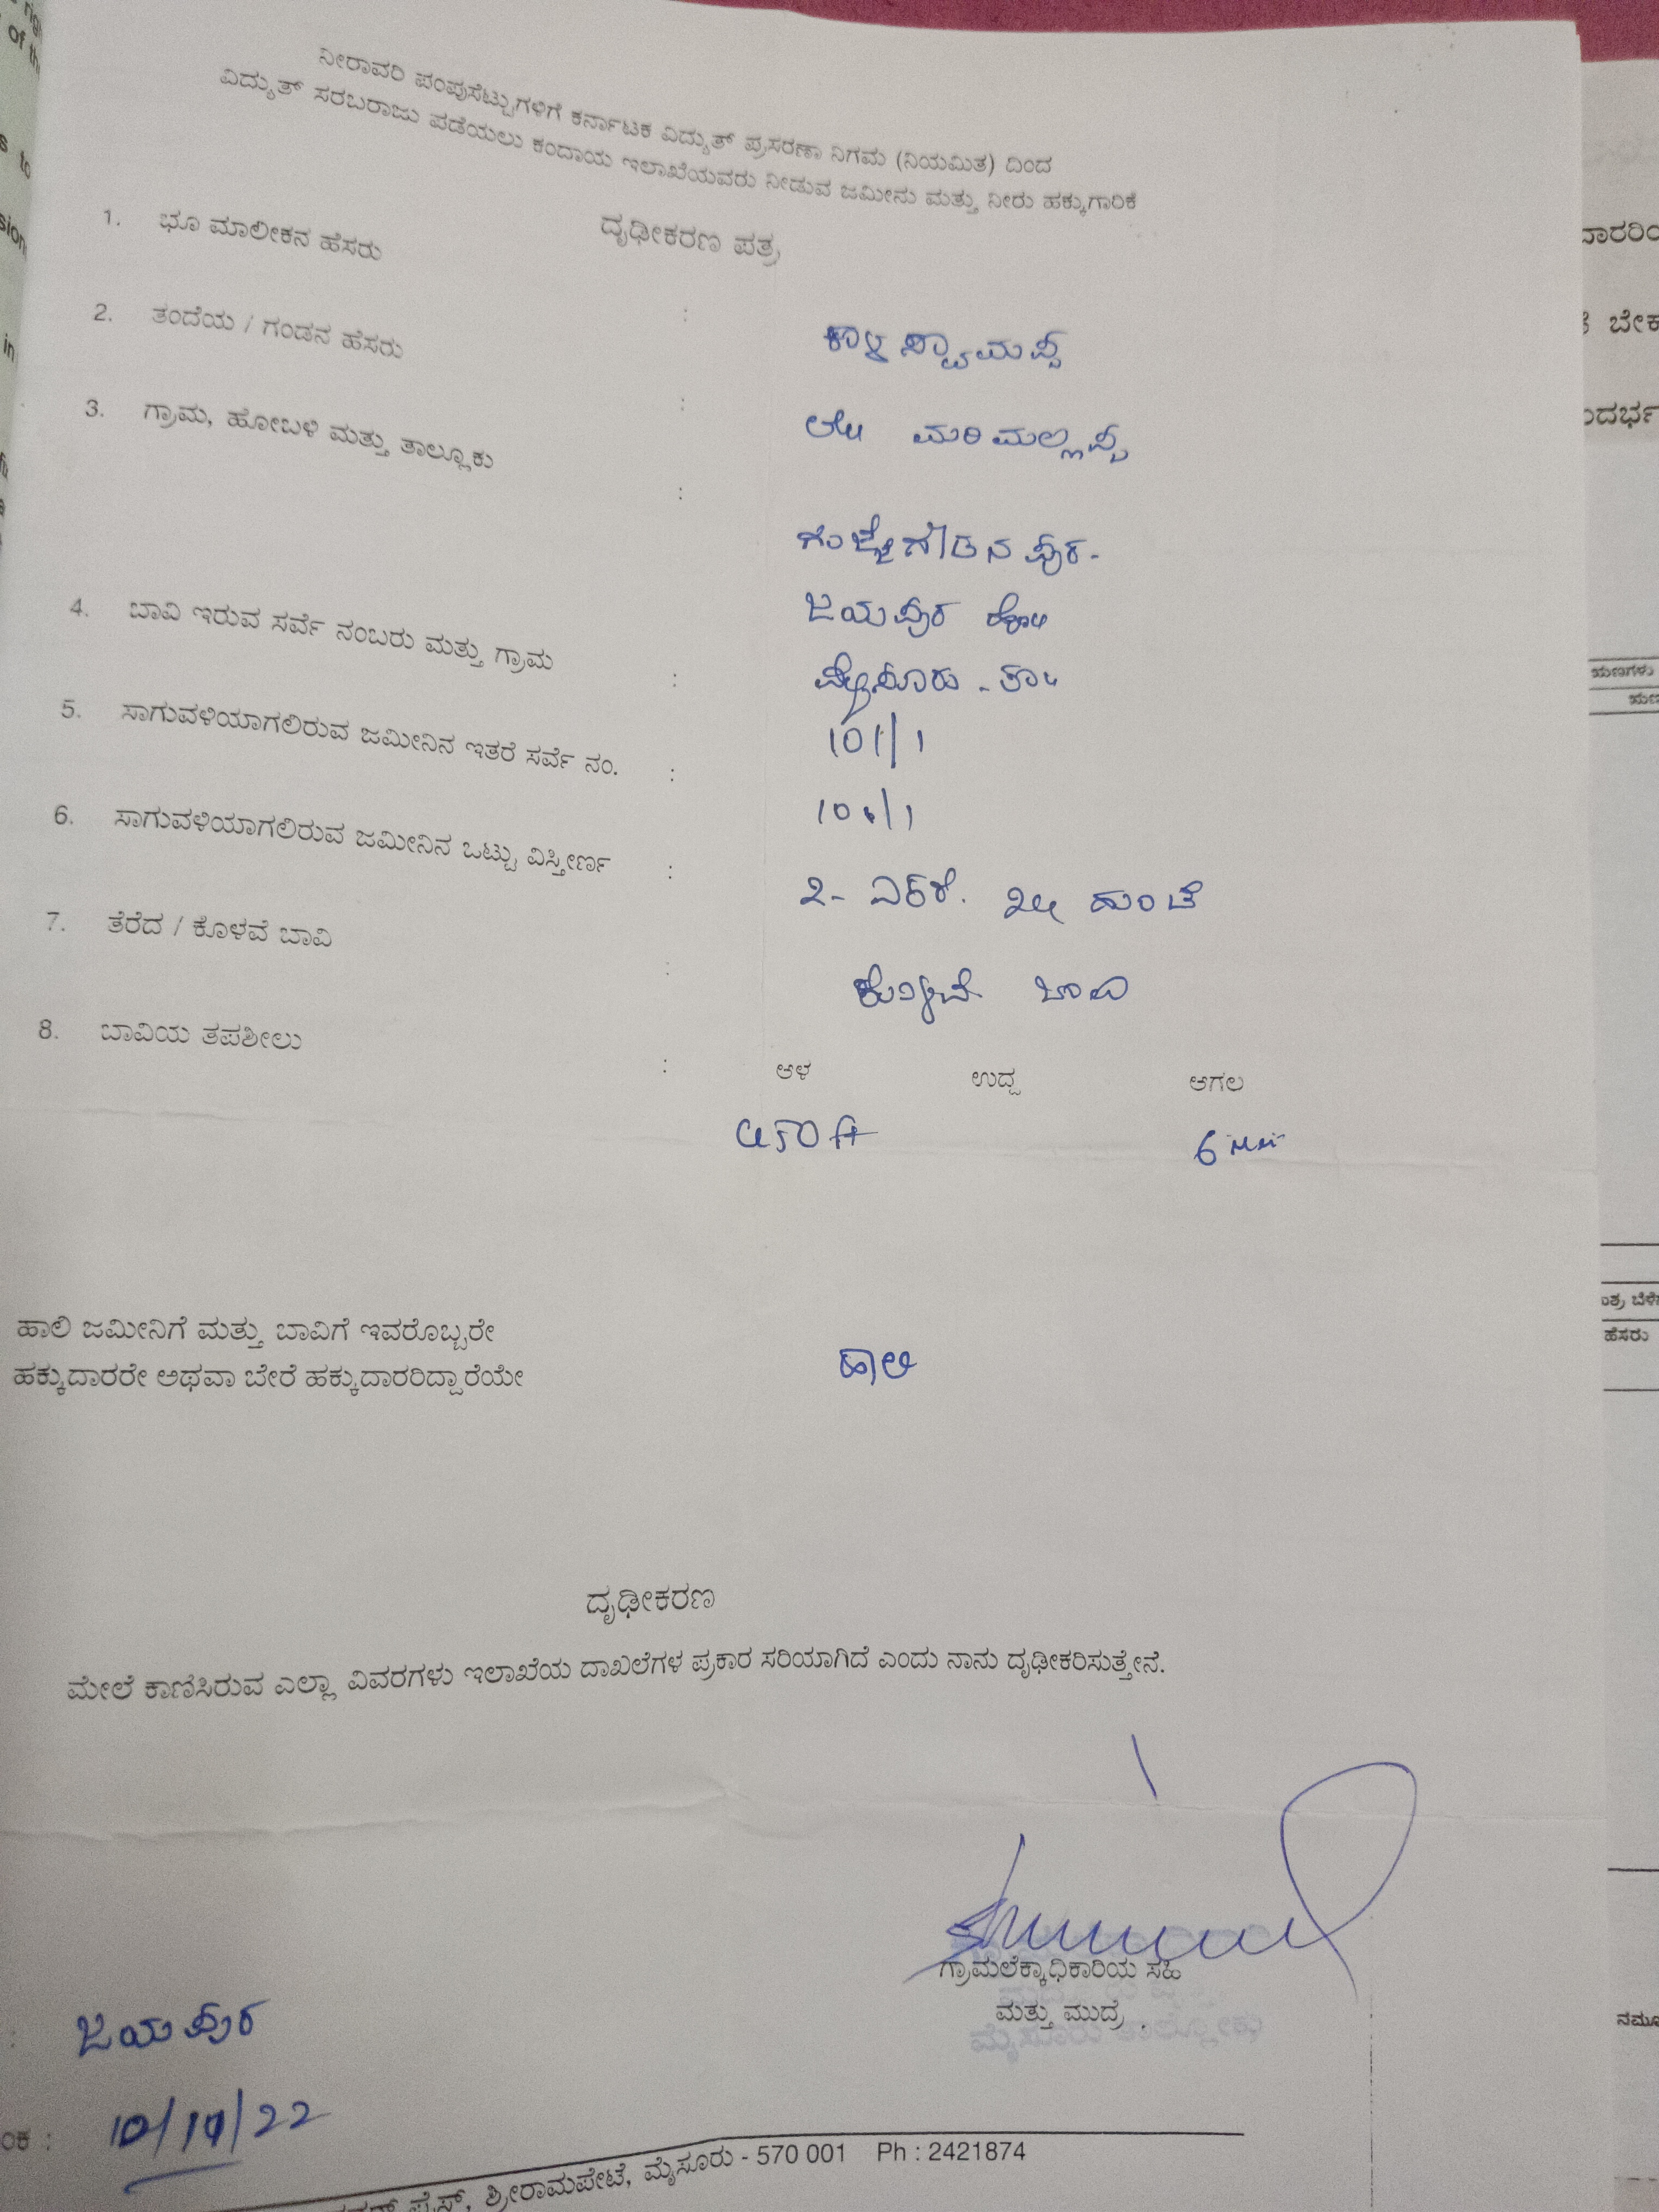 ನೀರಾವರಿ ಪಂಪುಸೆಟ್ಟುಗಳಿಗೆ ಕರ್ನಾಟಕ ವಿದ್ಯುತ್ ಪ್ರಸರಣಾ ನಿಗಮ (ನಿಯಮಿತ) ದಿಂದ
ವಿದ್ಯುತ್ ಸರಬರಾಜು ಪಡೆಯಲು ಕಂದಾಯ ಇಲಾಖೆಯವರು ನೀಡುವ ಜಮೀನು ಮತ್ತು ನೀರು ಹಕ್ಕುಗಾರಿಕೆ
ದೃಢೀಕರಣ ಪತ್ರ
1. ಭೂ ಮಾಲೀಕನ ಹೆಸರು : ಕಾಳಸ್ವಾಮಪ್ಪ
2. ತಂದೆಯ / ಗಂಡನ ಹೆಸರು : ಮರಿಮಲ್ಲಪ್ಪ
3. ಗ್ರಾಮ, ಹೋಬಳಿ ಮತ್ತು ತಾಲ್ಲೂಕು :
ಗುಜ್ಜೇಗೌಡನ ಪುರ-
ಜಯಪುರ ಹೋ॥
ಮೈಸೂರು - ತಾ॥
4. ಬಾವಿ ಇರುವ ಸರ್ವೆ ನಂಬರು ಮತ್ತು ಗ್ರಾಮ : 101/1
5. ಸಾಗುವಳಿಯಾಗಲಿರುವ ಜಮೀನಿನ ಇತರೆ ಸರ್ವೆ ನಂ. :
6. ಸಾಗುವಳಿಯಾಗಲಿರುವ ಜಮೀನಿನ ಒಟ್ಟು ವಿಸ್ತೀರ್ಣ : 2- ಎಕರೆ. ಗುಂಟೆ
7. ತೆರೆದ / ಕೊಳವೆ ಬಾವಿ : ಕೊಳವೆ ಬಾವಿ
8. ಬಾವಿಯ ತಪಶೀಲು : ಆಳ ಉದ್ದ ಅಗಲ
450 ft 6
ಹಾಲಿ ಜಮೀನಿಗೆ ಮತ್ತು ಬಾವಿಗೆ ಇವರೊಬ್ಬರೇ
ಹಕ್ಕುದಾರರೇ ಅಥವಾ ಬೇರೆ ಹಕ್ಕುದಾರರಿದ್ದಾರೆಯೇ ಹಾಲಿ
ದೃಢೀಕರಣ
ಮೇಲೆ ಕಾಣಿಸಿರುವ ಎಲ್ಲಾ ವಿವರಗಳು ಇಲಾಖೆಯ ದಾಖಲೆಗಳ ಪ್ರಕಾರ ಸರಿಯಾಗಿದೆ ಎಂದು ನಾನು ದೃಢೀಕರಿಸುತ್ತೇನೆ.
ಗ್ರಾಮಲೆಕ್ಕಾಧಿಕಾರಿಯ ಸಹಿ
ಮತ್ತು ಮುದ್ರೆ .
: ಜಯಪುರ
ಂಕ : /22
ಪ್ರೆಸ್, ಶ್ರೀರಾಮಪೇಟೆ, ಮೈಸೂರು - 570 001 Ph : 2421874